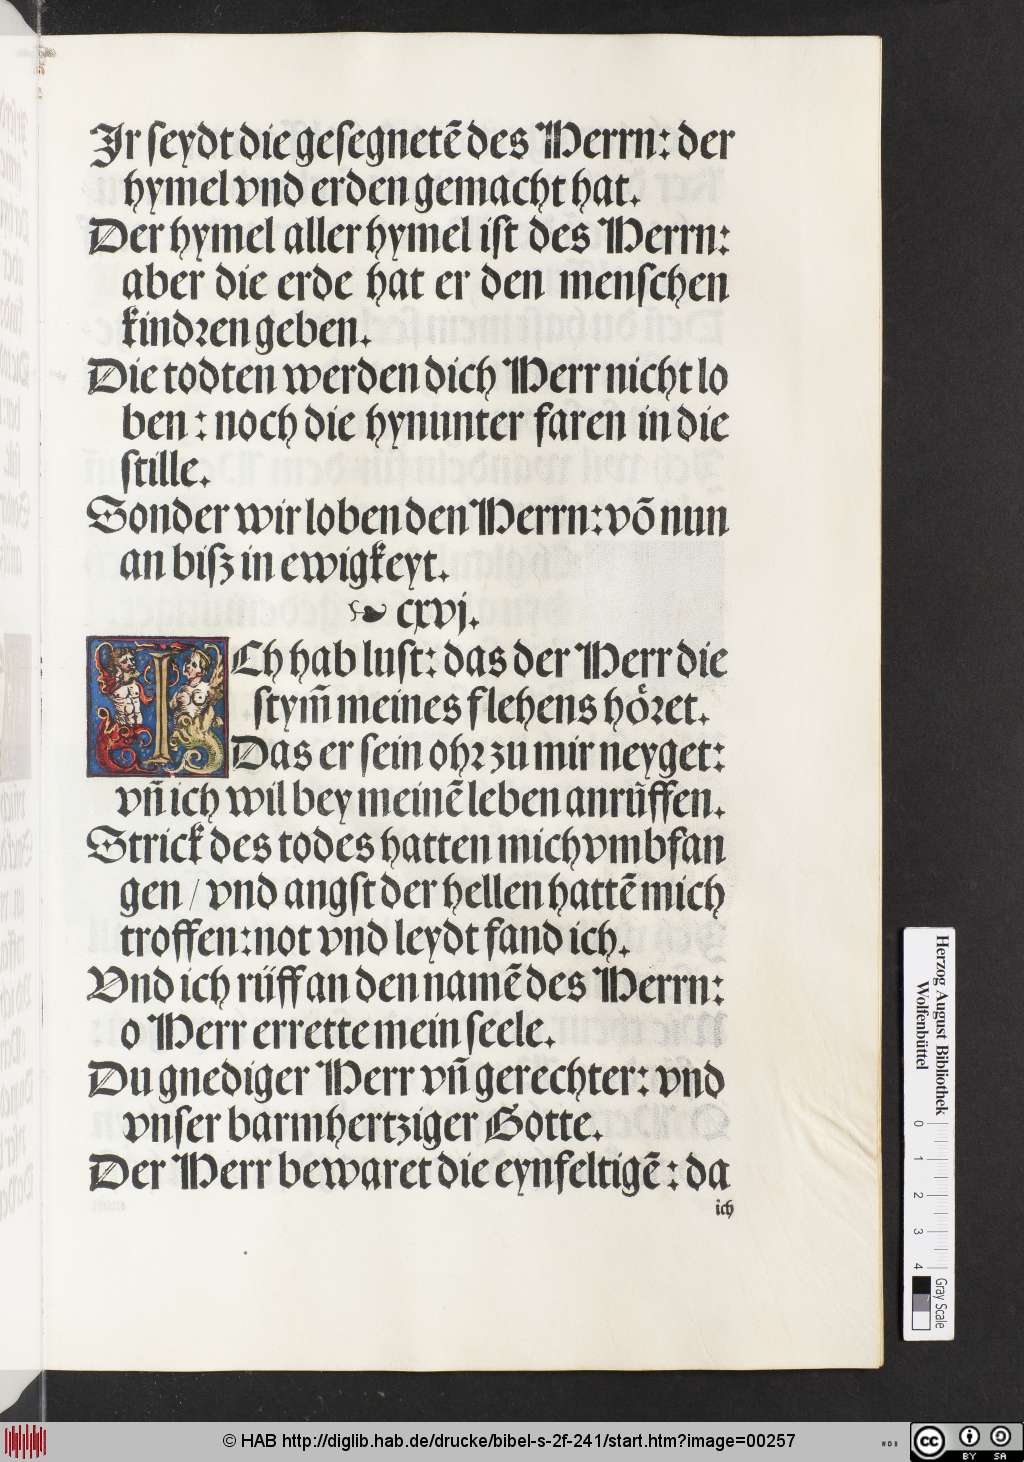 Jr seydt die gesegnetē des Herrn: der
hymel vnd erden gemacht hat.
Der hymel aller hymel ist des Herrn:
aber die erde hat er den menschen
kindꝛen geben.
Die todten werden dich Herr nicht lo
ben: noch die hynunter faren in die
stille.
Sonder wir loben den Herrn: võ nun
an bisz in ewigkeyt.
cxvj.
ICh hab lust: das der Herr die
stym̄ meines flehens höꝛet.
Das er sein ohꝛ zu mir neyget:
vn̄ ich wil bey meinē leben anrůffen.
Strick des todes hatten mich vmbfan
gen / vnd angst der hellen hattē mich
troffen: not vnd leydt fand ich.
Vnd ich rüff an den namē des Herrn:
o Herr errette mein seele.
Du gnediger Herr vn̄ gerechter: vnd
vnser barmhertziger Gotte.
Der Herr bewaret die eynfeltigē: da
ich
Herzog August Bibliothek
Wolfenbüttel
0 1 2 3 4
Gray Scale
© HAB http://diglib.hab.de/drucke/bibel-s-2f-241/start.htm?image=00257
WDB
cc BY SA